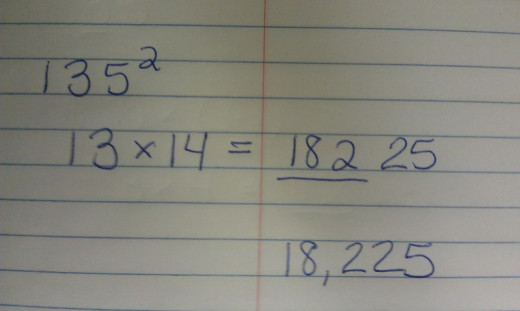 135²
13 × 14 = 182 25
18,225